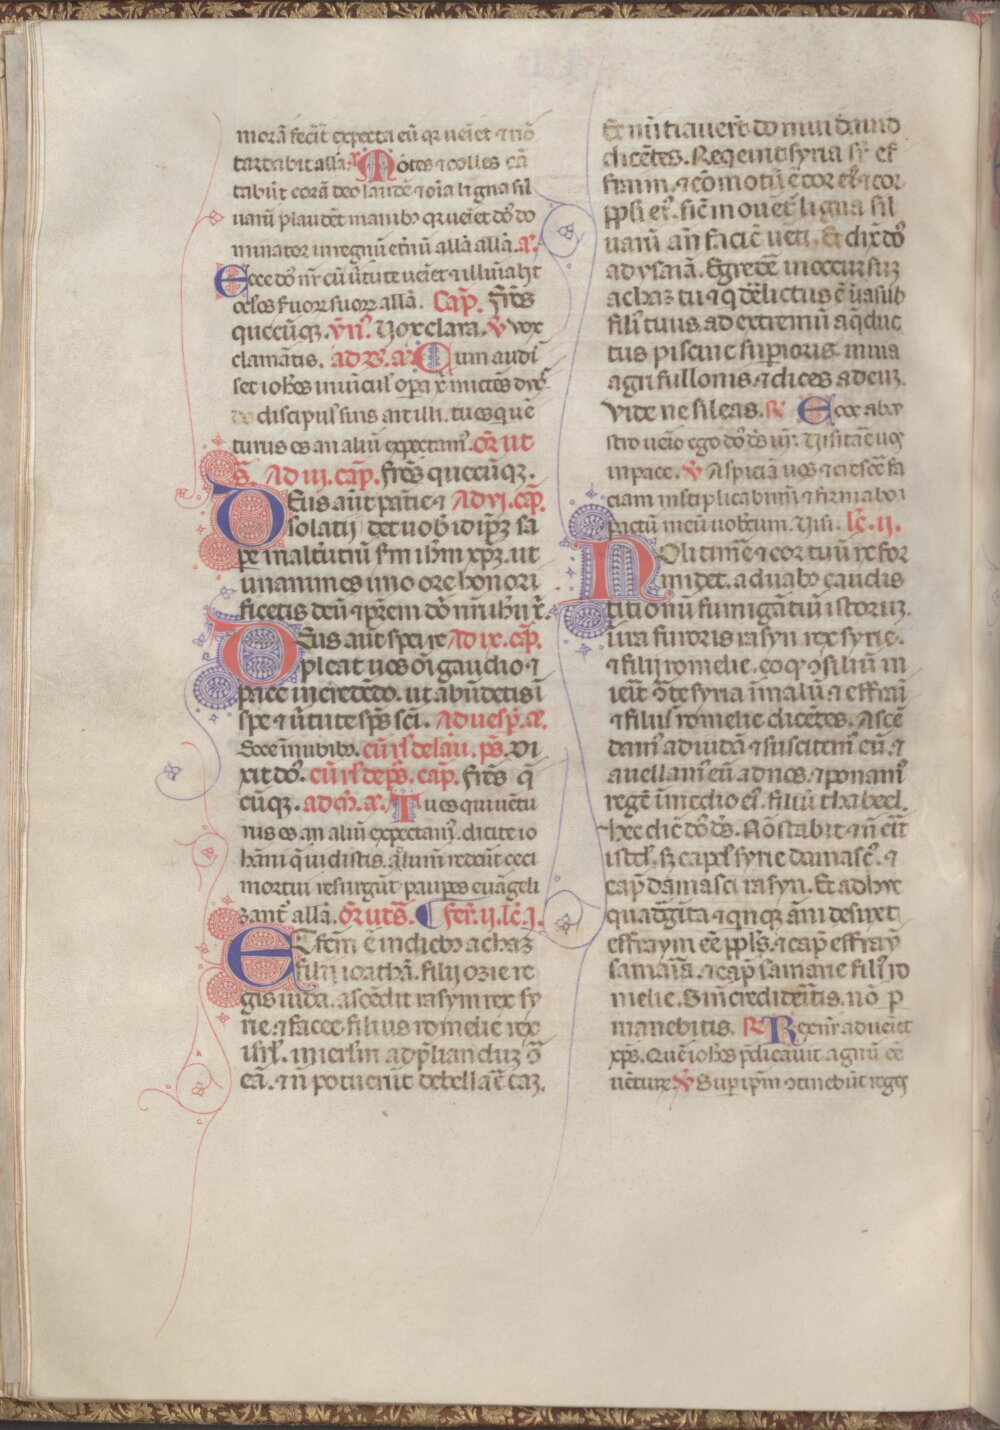 morā fecit̄ expecta eū qꝛ ueīet ⁊ nō
tardabit allā. a᷃ Mōtes ⁊ colles cā
tabūt corā deo laudē ⁊ oīa ligna sil
uarū plaudēt manibꝰ qꝛ ueīet dō᷃ do
minator in regnū et̄nū allā allā. a᷃.
Ecce dō᷃ nr̄ cū ūtute ueīet ⁊ illuīabit
ocl̄os suoꝝ allā. Cap̄. Fr̄es
quecūqꝫ. ỿ Uox clara. ỿ vox
clamātis. ad B᷃. a᷃ Cum audi
set ioh̄es in uincul᷃ op̄a xp̄i mictēs duos
de discipul᷃ suis ait illi. tu es qui uē
turus es an aliū expectam᷃. or̄ ut
s᷃. Ad iij. cap̄. fr̄es quecūqꝫ.
Deus aūt patīe ⁊ Ad vj. cap̄.
solatij det uob᷃ id ip̄ꝫ sa
pe in alt̄utrū sm ihm xp̄ꝫ. ut
unanimes uno ore honori
ficetis deū ⁊ pr̄em dō᷃ nr̄i ihu x̄.
Deus aūt spei re Ad ix. cap̄.
pleat uos oī gaudio ⁊
pace in credēdo. ut abūdetis ī
spe ⁊ ūtute sp̄s sc̄i. Ad uesp̄. a᷃.
Ecce ī nubibꝰ. cū r̄l᷃ de lau. ps̄. Di
xit dō᷃. cū r̄l᷃ de ps̄. cap̄. fr̄es q̄
cūqꝫ. ad m̄. a᷃. Tu es qui uētu
rus es an aliū expectam᷃. dicite io
hāni q̄ uidistis. ad lum̄ redeūt ceci
mortui resurgūt paup̄es euāgeli
zant᷃ allā. or̄ ut s᷃. fer᷃. ij. lc̄. j.
Et fc̄m ē in diebꝰ achaz
filij ioathā. filij ozie re
gis iuda. ascēdit rasym rex sy
rie. ⁊ facee filius romelie rex
isrl᷃. in ier̄lm ad p̄liandūꝫ ꝯ̄
eā. ⁊ n̄ potuerūt debellāe eaꝫ.
Et nūtiauer̄t domui dauid
dicētes. Reqeuit syria sr̄ ef
fraim. ⁊ cōmotū ē cor ei᷃ ⁊ cor
pp̄li ei᷃. sic̄ mouet᷃ ligna sil
uarū an̄ faciē uēti. Et dix̄ dō᷃
ad ysaiā. Egredē in occursuꝫ
achaz tu ⁊ q̄ de᷃lictus ē iasub
fili᷃ tuus. ad extremū aq̄duc
tus piscine sup̄ioris. in uia
agri fullonis. ⁊ dices ad euꝫ.
Vide ne sileas. ℟ Ecce ab au
stro uēio ego dō᷃ ds̄ ur̄. Uisitāe uos
in pace. ỿ Aspiciā uos ⁊ crescē fa
ciam m᷃tiplicabimī ⁊ firmabo
pactū meū uobiscum. Uisi. lc̄. ij.
Noli timē ⁊ cor tuū ne for
midet. a duabꝰ caudis
titionū fumigātiū istorūꝫ.
in ira furoris rasyn rex syrie.
⁊ filij romelie. eo qꝫ ꝯsiliū in
ierīt ꝯ̄ te syria ī malū ⁊ effraī
⁊ filius romelie dicētes. Ascē
dam᷃ ad iudā ⁊ suscitem᷃ eū. ⁊
auellam᷃ eū ad nos. ⁊ ponam᷃
regē ī medio ei᷃. filiū thabeel.
hec dic̄ dō᷃ ds̄. Nō stabit ⁊ n̄ erit
istd̄. sꝫ capᷣ syrie damasc᷃. ⁊
cap᷃ damasci rasyn. Et adhuc
quadgīta ⁊ qnqꝫ āni desinet
effraym eē pp̄ls᷃. ⁊ cap᷃ effraȳ
samaria. ⁊ cap᷃ samarie fili᷃ ro
melie. Si n̄ credideritis. nō p̄
manebitis. ℟ Rex nr̄ adueīet
xp̄s. Quē ioh̄es p̄dicauit agnū eē
uēturꝫ. ỿ Sup ip̄m ꝯtinebūt reges